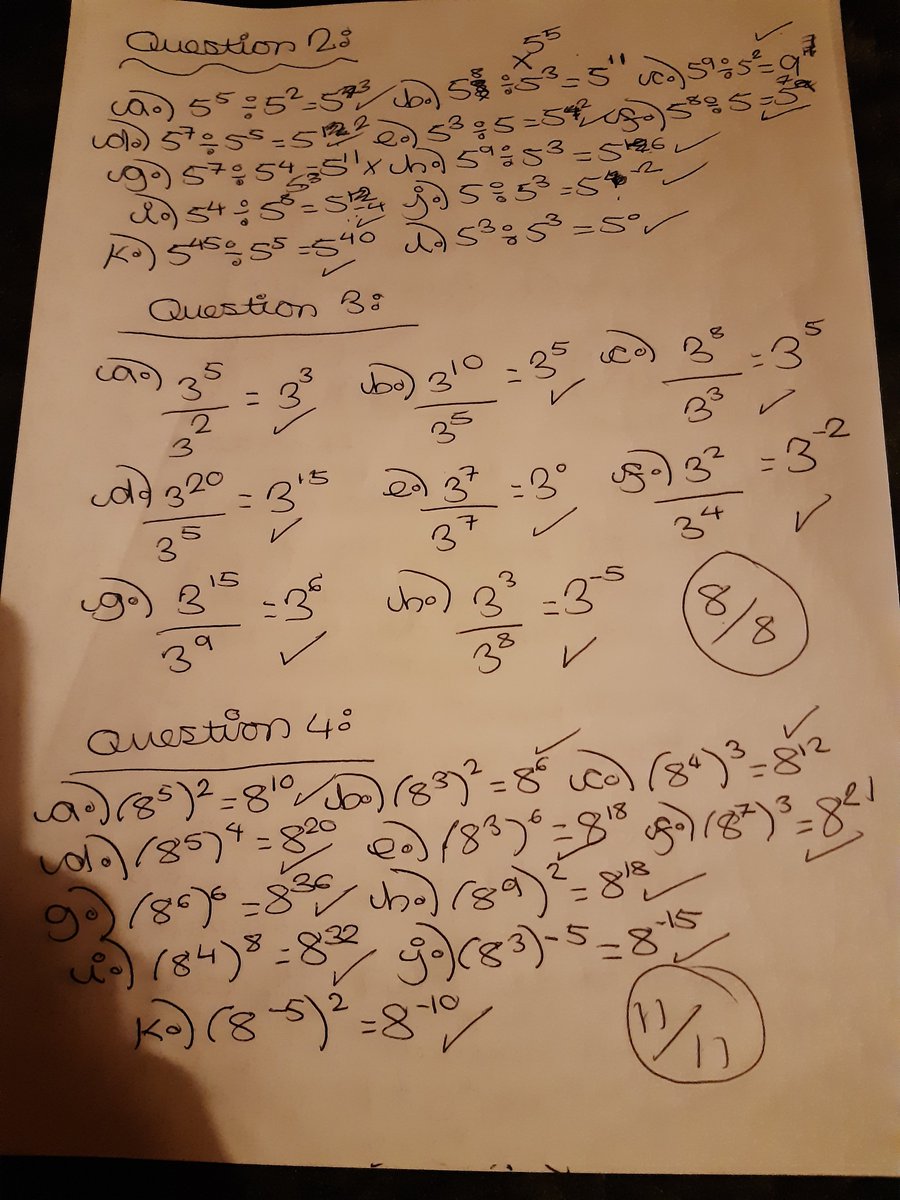 Question 2:
× 5⁵
a.) 5⁵ ÷ 5² = 5³ ✓ b.) 5⁸ ÷ 5³ = 5¹¹ c.) 5⁹ ÷ 5² = 9 ✓
d.) 5⁷ ÷ 5⁵ = 5² ✓ e.) 5³ ÷ 5 = 5² ✓ f.) 5⁸ ÷ 5 = 5⁷ ✓
g.) 5⁷ ÷ 5⁴ = 5¹¹ × h.) 5⁹ ÷ 5³ = 5⁶ ✓
5³
i.) 5⁴ ÷ 5⁸ = 5⁻⁴ ✓ j.) 5 ÷ 5³ = 5⁻² ✓
k.) 5⁴⁵ ÷ 5⁵ = 5⁴⁰ ✓ l.) 5³ ÷ 5³ = 5⁰ ✓
Question 3:
a.) 3⁵/3² = 3³ ✓ b.) 3¹⁰/3⁵ = 3⁵ ✓ c.) 3⁸/3³ = 3⁵ ✓
d.) 3²⁰/3⁵ = 3¹⁵ ✓ e.) 3⁷/3⁷ = 3⁰ ✓ f.) 3²/3⁴ = 3⁻² ✓
g.) 3¹⁵/3⁹ = 3⁶ ✓ h.) 3³/3⁸ = 3⁻⁵ ✓ 8/8
Question 4:
a.) (8⁵)² = 8¹⁰ ✓ b.) (8³)² = 8⁶ ✓ c.) (8⁴)³ = 8¹² ✓
d.) (8⁵)⁴ = 8²⁰ ✓ e.) (8³)⁶ = 8¹⁸ ✓ f.) (8⁷)³ = 8²¹ ✓
g.) (8⁶)⁶ = 8³⁶ ✓ h.) (8⁹)² = 8¹⁸ ✓
i.) (8⁴)⁸ = 8³² ✓ j.) (8³)⁻⁵ = 8⁻¹⁵ ✓
k.) (8⁻⁵)² = 8⁻¹⁰ ✓ 11/11